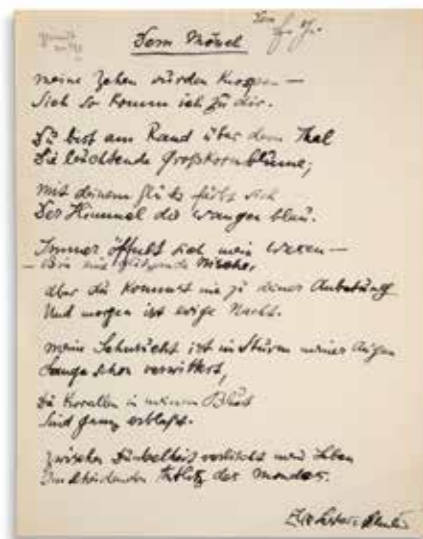 Dem Mönch
meine Zehen wurden Knospen —
Sieh so komm ich zu dir.
Du bist am Rand über dem Thal
Die leuchtende Großkornblume;
mit deinem färbt sich
Der Himmel die Wangen blau.
Immer öffnet sich mein Wesen —
— Bin eine glühende Nische,
aber du kommst nie zu deiner Anbetung
Und morgen ist ewige Nacht.
meine Sehnsucht ist im Sturm meiner Augen
Lange schon verwittert,
Die Korallen in meinem Blut
Sind ganz erblaßt.
Zwischen Dunkelheit verlischt mein Leben
Im scheidenden Antlitz des Mondes.